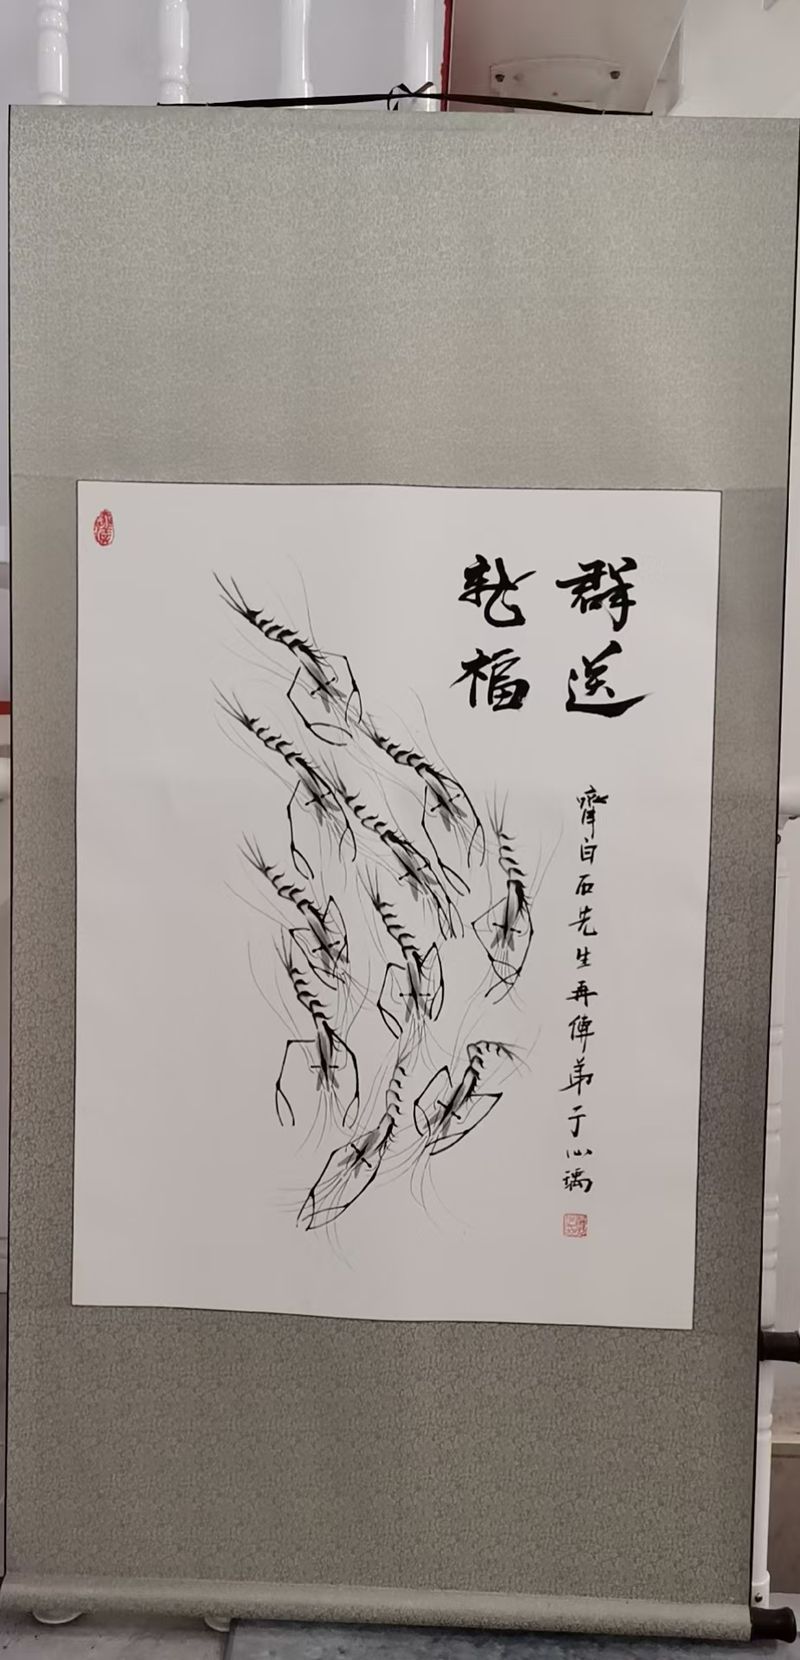 群龍
送福
齊白石先生再傳弟子心瑀